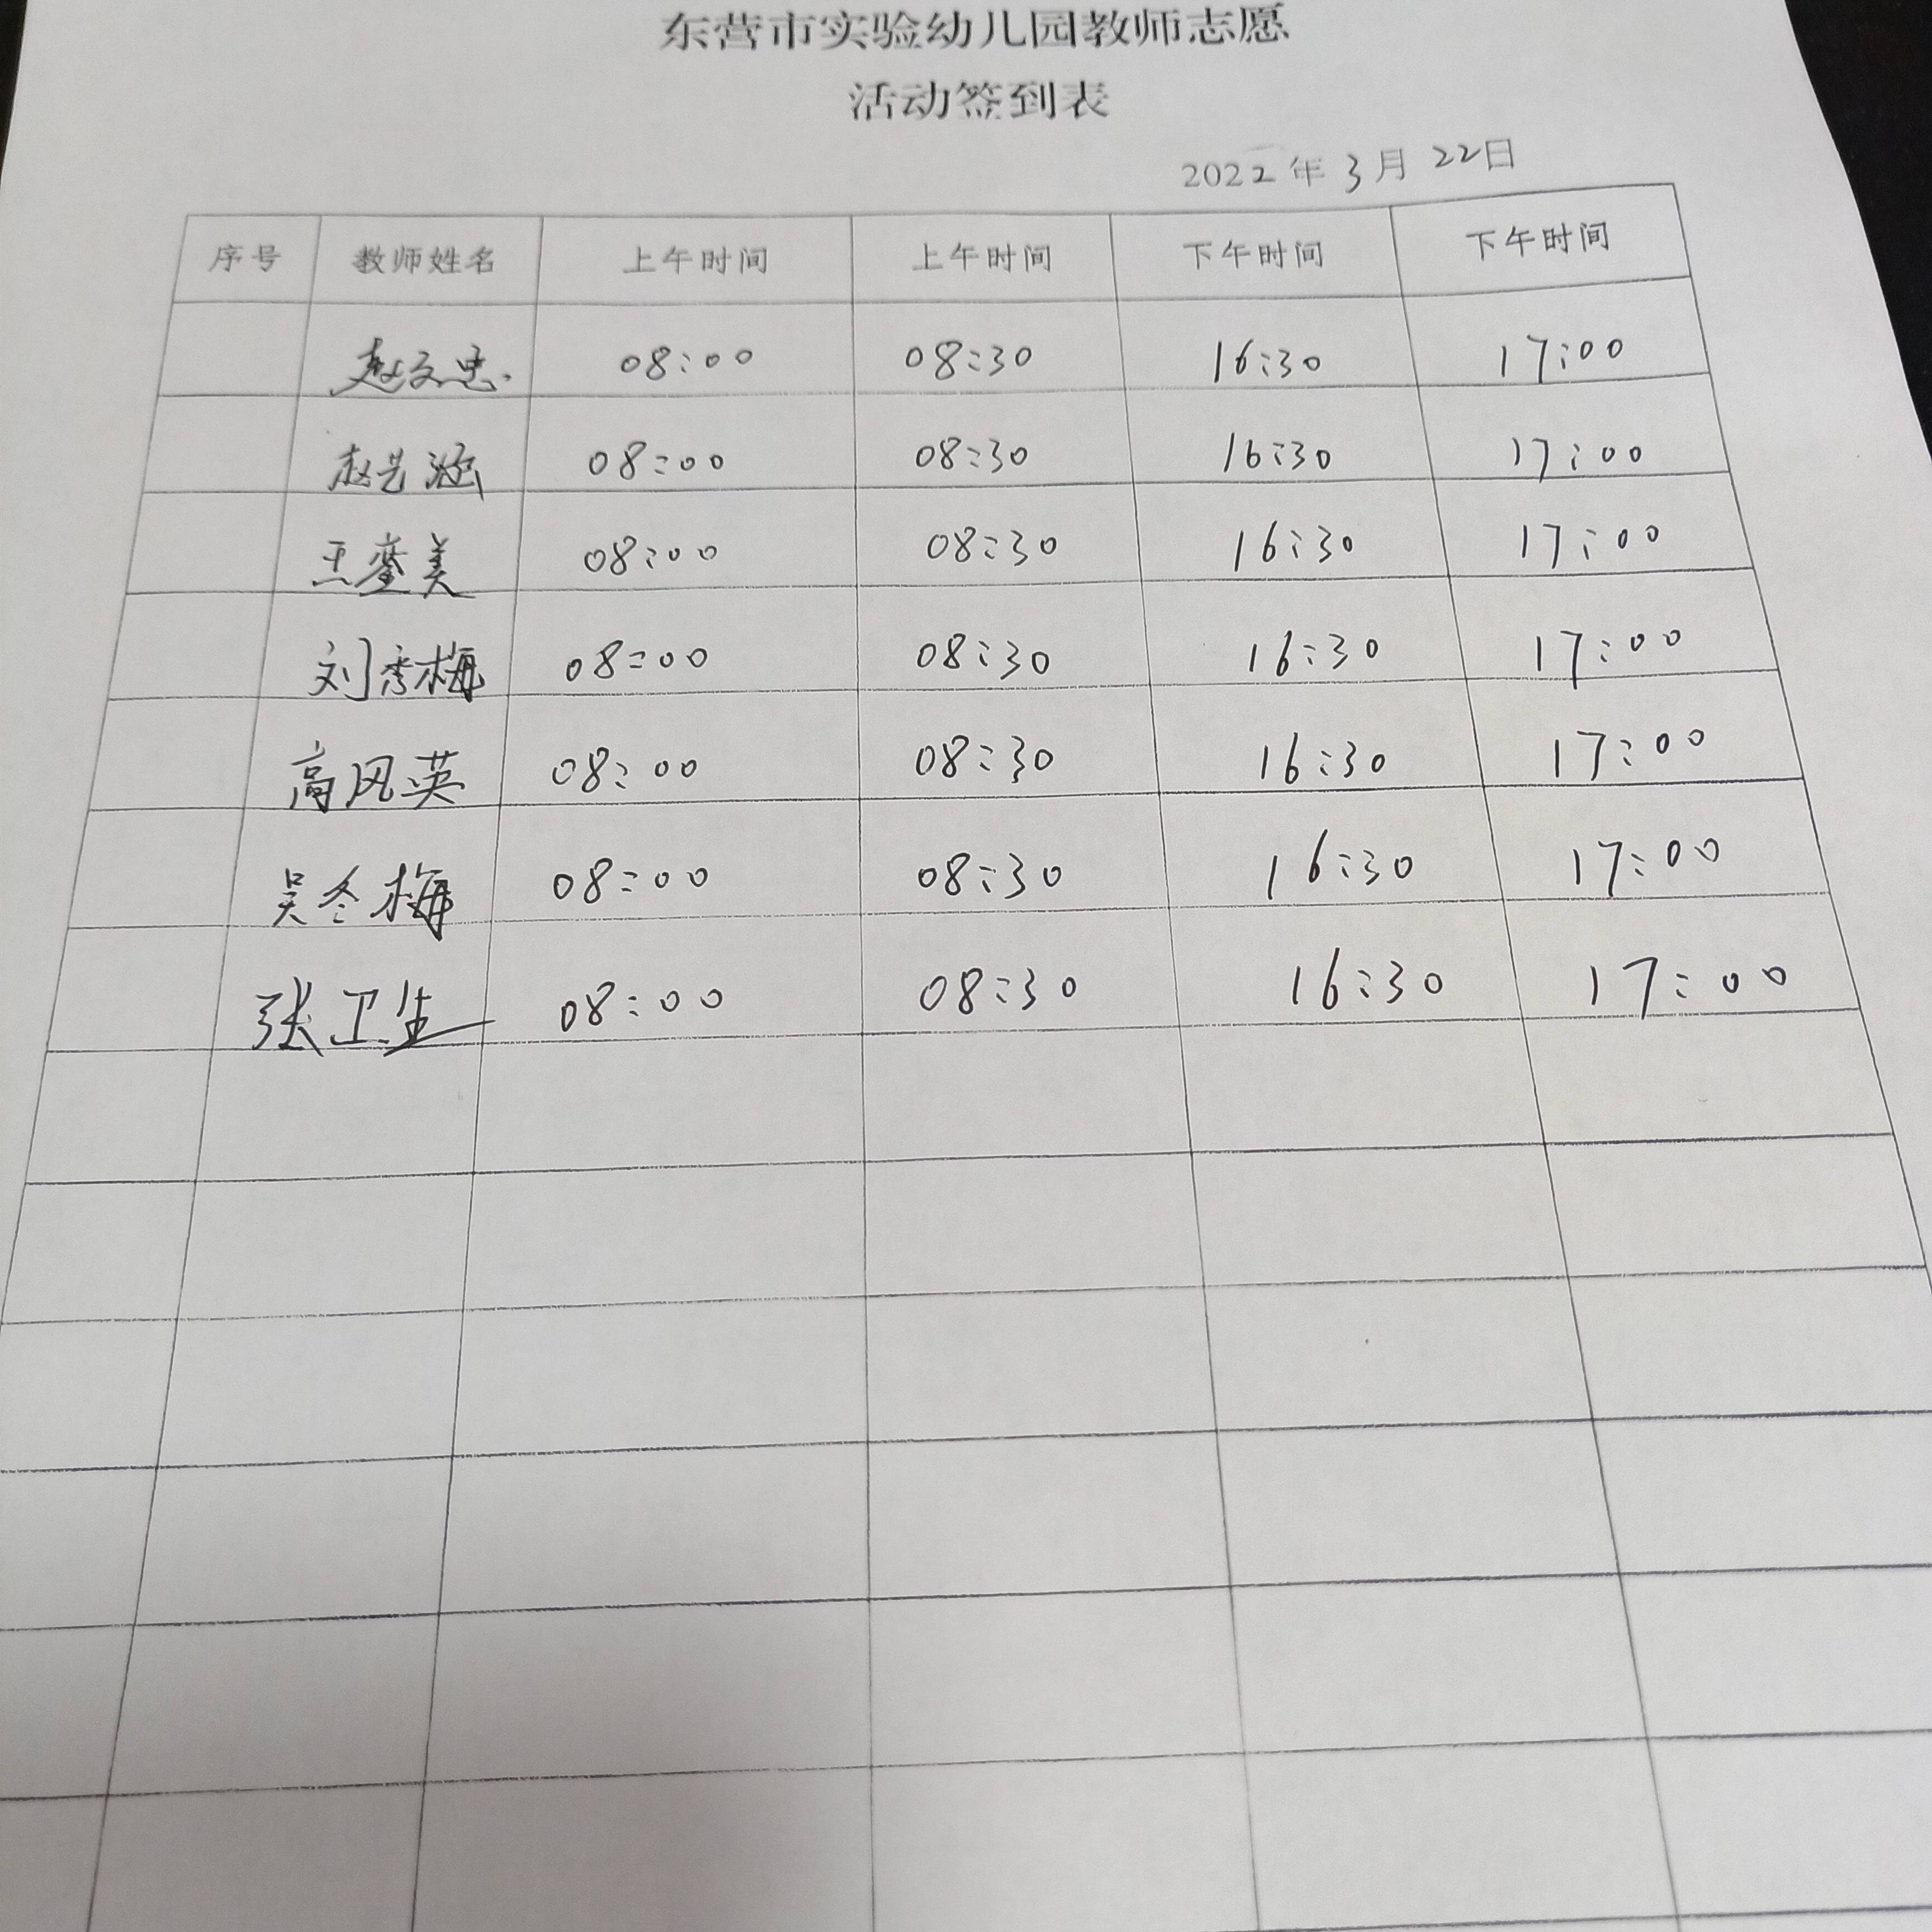 东营市实验幼儿园教师志愿
活动签到表
2022年3月22日
序号 教师姓名 上午时间 上午时间 下午时间 下午时间
赵文忠 08:00 08:30 16:30 17:00
赵艺涵 08:00 08:30 16:30 17:00
王 美 08:00 08:30 16:30 17:00
刘秀梅 08:00 08:30 16:30 17:00
高风英 08:00 08:30 16:30 17:00
吴冬梅 08:00 08:30 16:30 17:00
张卫生 08:00 08:30 16:30 17:00